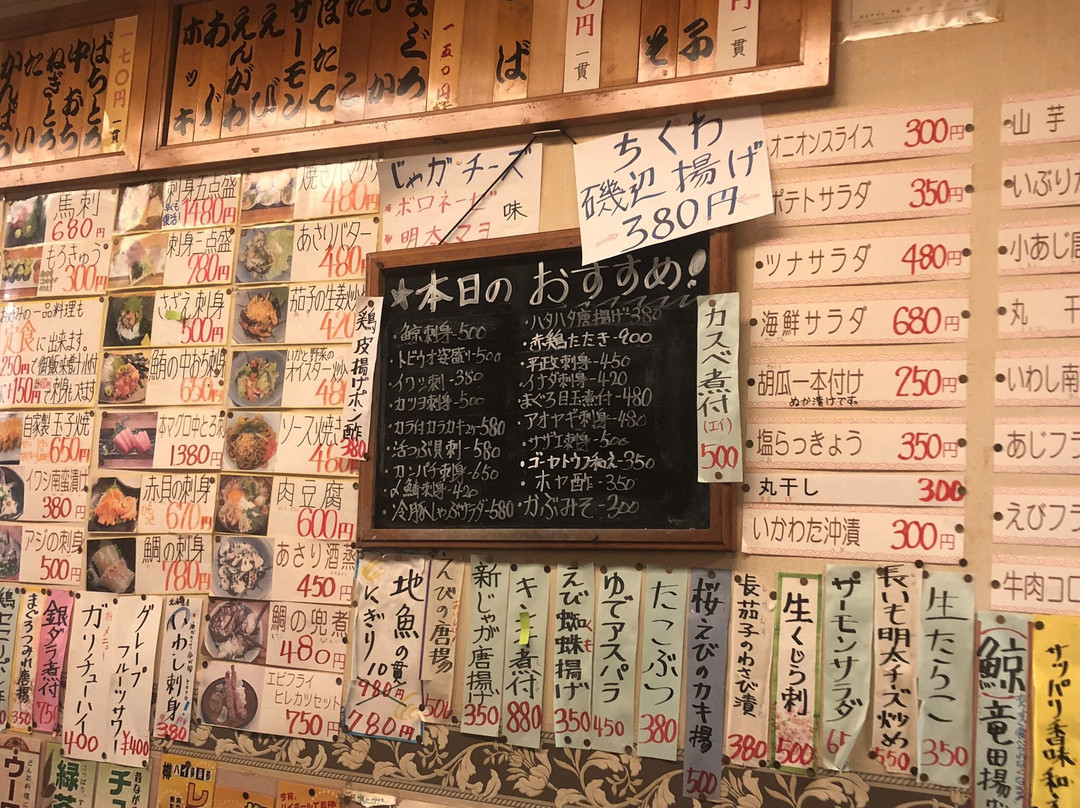 一七〇円
一貫
ばちとろ
中おち
ねぎとろ
サーモン
えび
えんがわ
あじ
ホッキ
ほたて
たこ
いか
まぐろ
一五〇円
一貫
円
一貫
円
一貫
じゃがチーズ
ボロネーゼ
明太マヨ
味
ちくわ
磯辺揚げ
380円
オニオンスライス 300円
ポテトサラダ 350円
ツナサラダ 480円
海鮮サラダ 680円
胡瓜一本付け 250円
ぬか漬けです。
塩らっきょう 350円
丸干し 300
いかわた沖漬 300円
山芋
いぶりが
小あじ唐
丸干
いわし南
あじフラ
えびフラ
牛肉コロ
★本日のおすすめ!
・鯨刺身-500
・トビウオ姿盛り-500
・イワシ刺-380
・カツオ刺身-500
・カラ付カラカキ2ケ-580
・活つぶ貝刺-580
・カンパチ刺身-650
・〆鯖刺身-420
・冷豚しゃぶサラダ-580
・ハタハタ唐揚げ-380
・赤鶏たたき-900
・平政刺身-450
・イナダ刺身-420
・まぐろ目玉煮付-480
・アオヤギ刺身-480
・サザエ刺身-500
・ゴーヤトウフ和え-350
・ホヤ酢-350
・カぶみそ-300
カスベ煮付
(エイ)
500
鶏皮揚げポン酢
380
馬刺
680円
もろきゅう
300円
刺身五点盛
1480円
刺身一点盛
980円
さざえ刺身
500円
鮪の中おち刺身
650円
本マグロ中とろ刺
1380円
赤貝の刺身
670円
鯛の刺身
780円
480円
あさりバター
480
茄子の生姜炒め
420
いかと野菜の
オイスター炒
ソース焼き
480
肉豆腐
600円
あさり酒蒸
450円
鯛の兜煮
480円
エビフライ
ヒレカツセット
750円
一品料理も
定食
に出来ます。
自家製玉子焼
650円
イワシ南蛮漬け
380円
アジの刺身
500円
まぐろつみれ唐揚
350
銀ダラ煮付
ガリチューハイ
400
グレープ
フルーツサワー
¥400
いわし刺身
380
地魚の
にぎり10貫
980円
780円
えびの唐揚
500
新じゃが唐揚
350
キンキ煮付
880
えび蜘蛛揚げ
350
ゆでアスパラ
450
たこぶつ
380
桜えびのカキ揚
500
長茄子のわさび漬
380
生くじら刺
500
サーモンサラダ
長いも明太チーズ炒め
550
生たらこ
350
鯨竜田揚
サッパリ香味和
緑茶